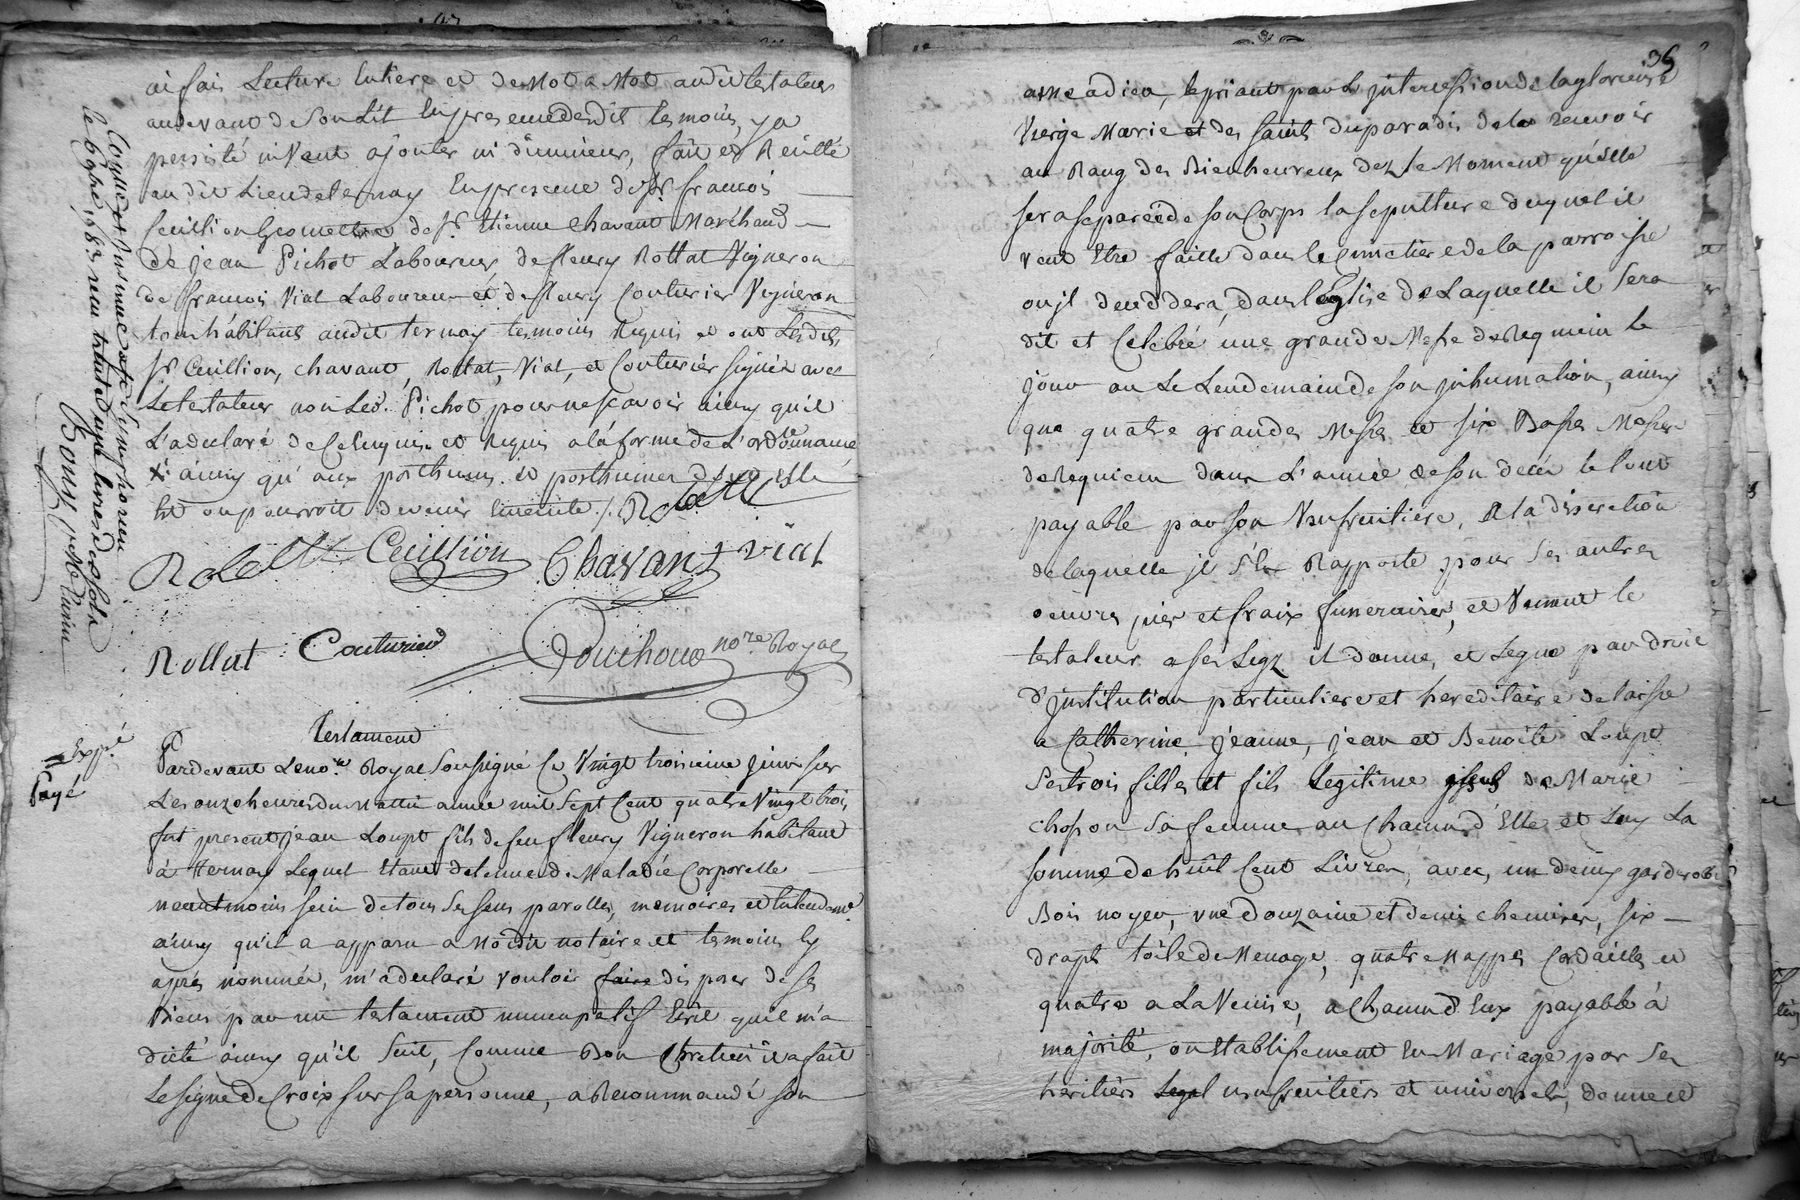 ai fais Lecture Entiere et de Mot a Mot audit testateur
audevant de Son Lit En presence desdits temoins, y a
persisté ni veut ajouter ni diminuer, fait et Recitté
audit Lieu de ternay En presence de Sr francois
Cuillion Geometre de Sr Etienne Chavant Maréchand
de jean Pichot Laboureur de fleury Rottat Vigneron
de francois Vial Laboureur et de fleury Couturier Vigneron
tous habitants audit ternay temoins Requis et ont Lesdits
Sr Cuillion, chavant, Rottat, Vial, et Couturier signés avec
Le testateur non Led. Pichot pour ne scavoir ainsy qu'il
L'a declaré de Ce Enquis et Requis a la forme de L'ordonnance
ainsy qu'aux posthumes et posthumes dont elle
est ou pourroit devenir Enceinte /. Rolette
Rolette Cuillion Chavant vial
Rollat Couturier Bouchout nore Royal
Controllé et Insinué a St Simphorien
le 6 7bre 1783 reçu trente
Expé.
Payé
Testament
Pardevant Le nore Royal Soussigné Ce Vingt troisieme juin sur
Les onze heures du Mattin année mil Sept Cent quatre Vingt trois,
fut present jean Loupt fils de feu fleury Vigneron habitant
à ternay Lequel Etant detenu de Maladie Corporelle
neantmoins sain de tous Ses sens parolles, memoires et Entendemt.
ainsy qu'il a apparu a Nodit notaire et temoins Cy
après nommés, m'a declaré vouloir faire disposer de Ses
Biens par un testament nuncupatif Ecrit qu'il m'a
dicté ainsy qu'il Suit, Comme Bon Chretien il a fait
Le signe de Croix sur Sa personne, a Recommandé son
36
ame a dieu, le priant par L'jntercession de la glorieuse
Vierge Marie et des saints du paradis de la recevoir
au Rang des Bienheureux dez le Moment qu'elle
sera separée de son Corps la sepulture duquel il
veut Etre faitte dans le Cimetiere de la parroisse
ou jl deceddera, dans l'Eglise de Laquelle il sera
dit et Celebré une grande Messe de Requiem le
jour ou Le Lendemain de son jnhumation, ainsy
que quatre grandes Messes et six Basses Messes
de Requiem dans L'année de son decès le tout
payable par son Usufruitiere, A la discretion
de laquelle jl s'En Rapporte pour Ses autres
oeuvres pies et fraix funeraires, et Venant le
testateur a Ses Legz il donne, et Legue par droit
d'jnstitution particuliere et hereditaire delaisse
a Catherine, jeanne, jean et Benoite Loupt
Ses trois filles et fils Legitime de Marie
chosson Sa femme au Chacun d'Elle et Luy La
somme de huit Cent Livres, avec, un demy garderobe
Bois noyer, une douzaine et demi chemises, six
draps toile de Menage, quatre Nappes Cordailles et
quatre a La Venise, a Chacun d'Eux payable à
majorité, ou Etablissement En Mariage par Ses
heritiers usufruitiers et universels, donne et